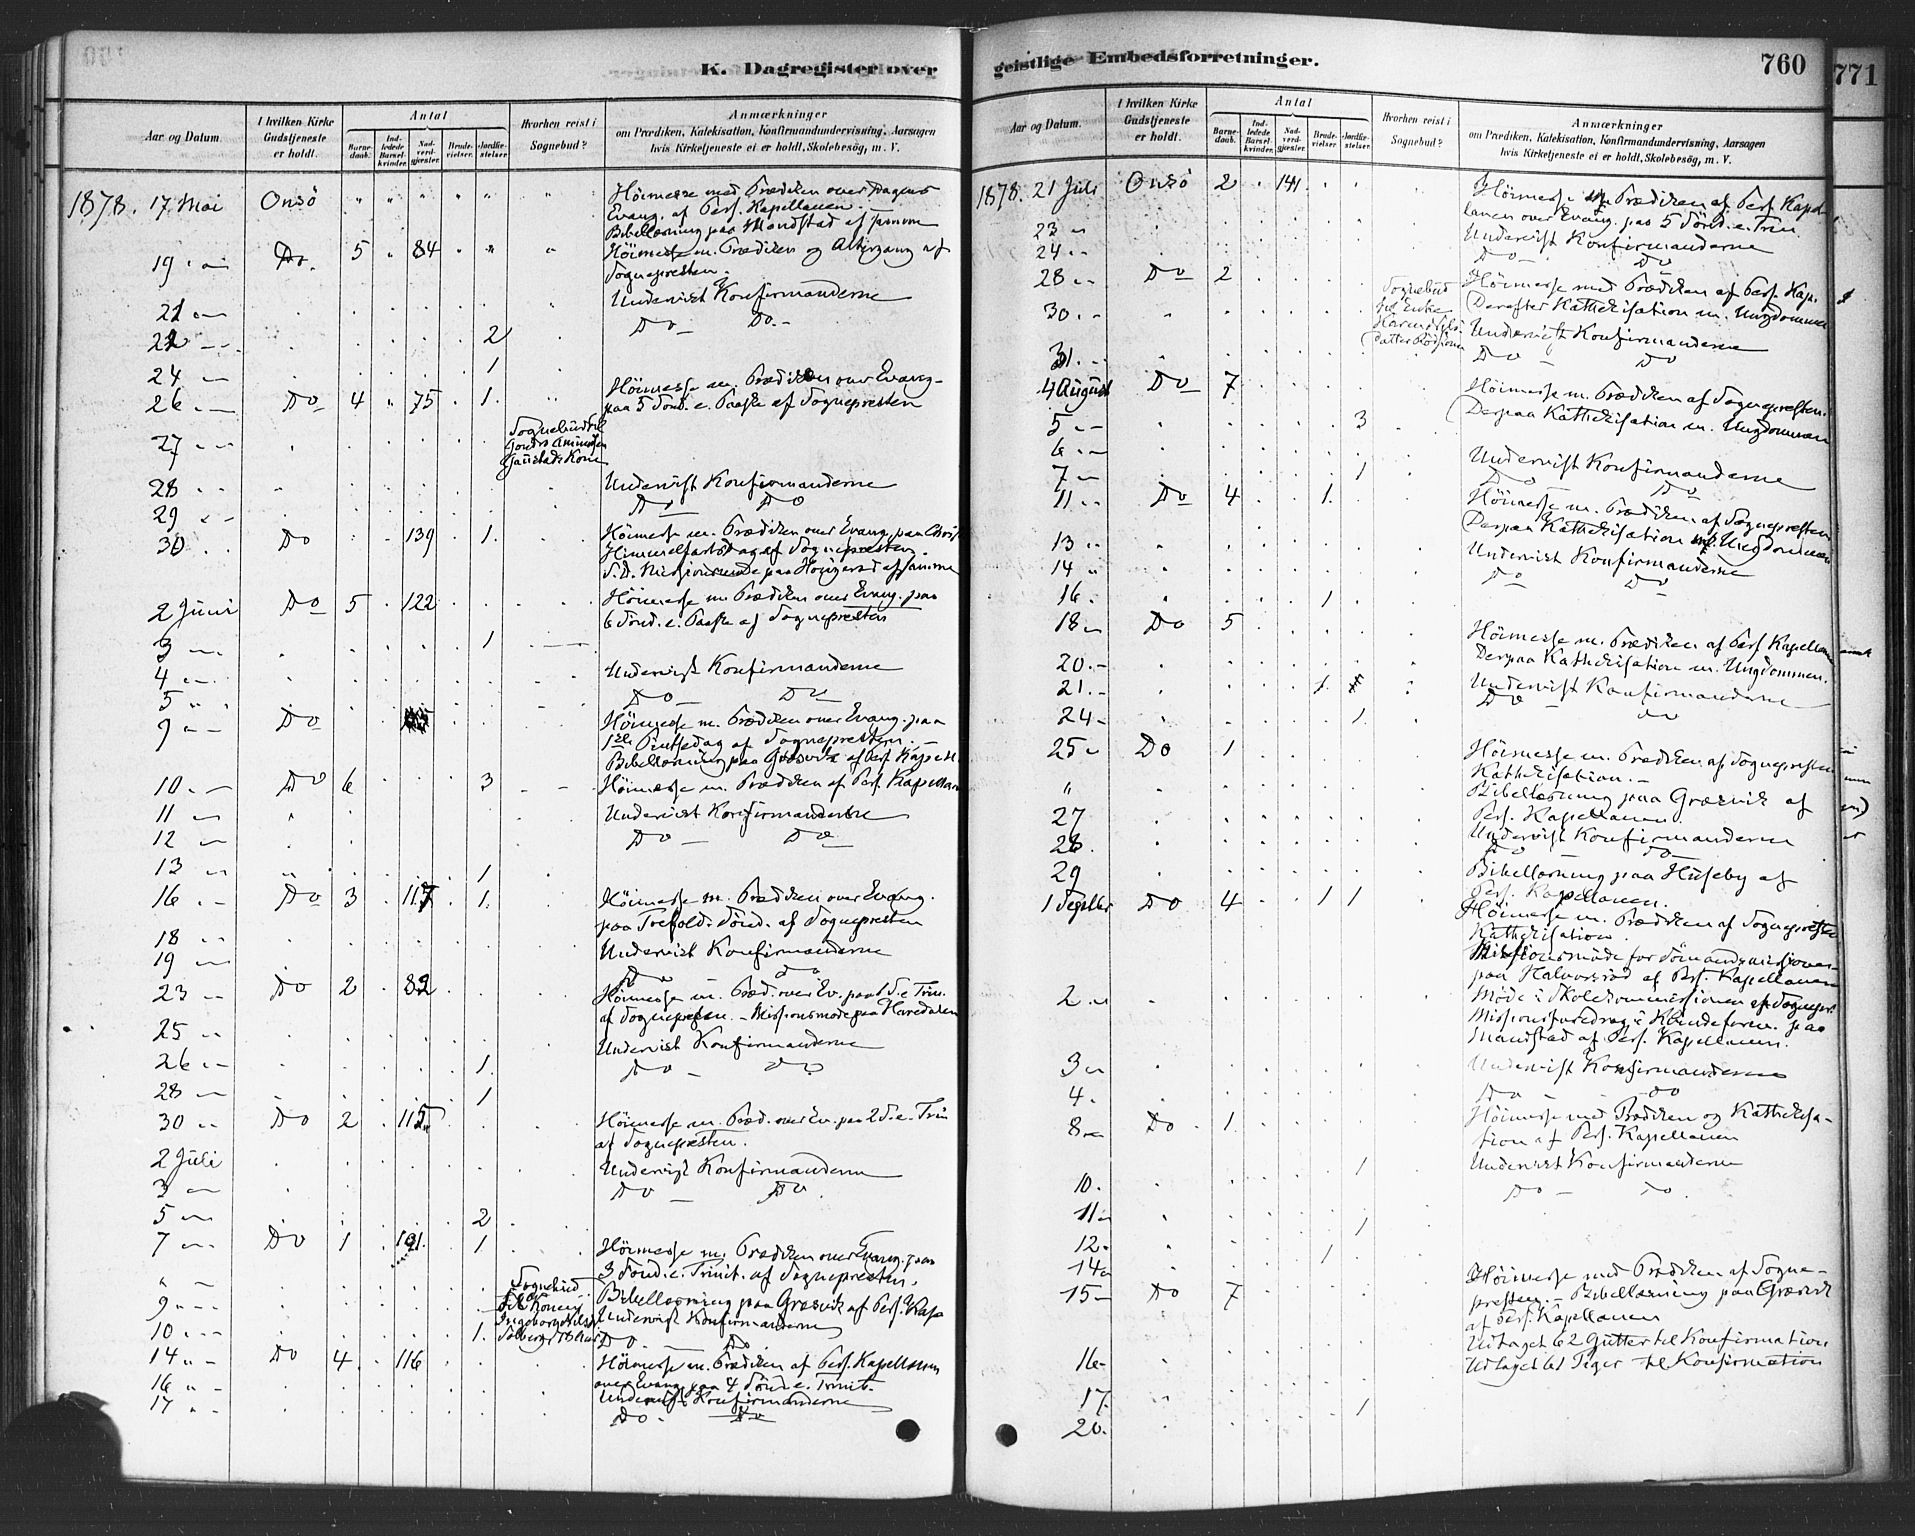 K. Dagregister over
Aar og Datum.
I hvilken Kirke Gudstjeneste er holdt.
Antal
Barnedaab.
Indledede Barselkvinder.
Nadverdgjester.
Brudevielser.
Jordfæstelser.
Hvorhen reist i Sognebud?
Anmærkninger
om Prædiken, Katekisation, Konfirmandundervisning, Aarsagen
hvis Kirketjeneste ei er holdt, Skolebesøg, m. V.
1878. 17 Mai Onsö " " " " " " Höimesse med Prædiken over Dagens
Evang. af Pers. Kapellanen.
Bibellæsning paa Mandstad af samme
19 " Do. 5 " 84 " " " Höimesse m. Prædiken og Altergang af
Sognepresten.
21 " Undervist Konfirmanderne
22 " 2 Do Do
24 " 1
26 " Do 4 " 75 . 1. Höimesse m. Prædiken over Evang.
paa 5 Sönd. e. Paaske af Sognepresten
27 " Sognebud til
28 " Undervist Konfirmanderne
29 " Do Do
30 " Do 139 1. Höimesse m. Prædiken over Evang. paa Christi
Himmelfartsdag af Sognepresten.
2 Juni Do 5 . 122 Höimesse m. Prædiken over Evang. paa
6 Sönd. e. Paaske af Sognepresten
3 " 1
4 " Undervist Konfirmanderne
5 " Do Do
9 " Do Höimesse m. Prædiken over Evang. paa
1ste Pintsedag af Sognepresten. –
Bibellæsning paa Græsvik af Pers. Kapell.
10 " Do 6 3 Höimesse m. Prædiken af Pers. Kapellanen
11 " Undervist Konfirmanderne
12 " Do Do
13 " 1
16 " Do 3 . 117 . 1. Höimesse m. Prædiken over Evang.
paa Trefold. Sönd. af Sognepresten
18 " Undervist Konfirmanderne
19 " Do Do
23 " Do 2 . 82 Höimesse m. Præd. over Ev. paa 1 S. e. Trin.
af Sognepresten. – Missionsmöde paa
25 " Undervist Konfirmanderne
26 " 1. Do Do
28 " 1
30 " Do 2 . 115 Höimesse m. Præd. over Ev. paa 2 S. e. Trin
af Sognepresten.
2 Juli Undervist Konfirmanderne
3 " Do Do
5 " 2
7 " Do 1 . 101. 1 Höimesse m. Prædiken over Evang. paa
3 Sönd. e. Trinit. af Sognepresten.
" " Sognebud Bibellæsning paa Græsvik af Pers. Kap
9 " Undervist Konfirmanderne
10 " 1. Do Do
14 " Do 4. . 116 Höimesse m. Prædiken af Pers. Kapellanen
over Evang. paa 4 Sönd. e. Trinit.
16 " Undervist Konfirmanderne
17 " Do Do
geistlige Embedsforretninger.
760
771
Aar og Datum.
I hvilken Kirke Gudstjeneste er holdt.
Antal
Barnedaab.
Indledede Barselkvinder.
Nadverdgjester.
Brudevielser.
Jordfæstelser.
Hvorhen reist i Sognebud?
Anmærkninger
om Prædiken, Katekisation, Konfirmandundervisning, Aarsagen
hvis Kirketjeneste ei er holdt, Skolebesøg, m. V.
1878. 21 Juli Onsö 2 . 141 Höimesse m. Prædiken af Pers. Kapel-
lanen over Evang. paa 5 Sönd. e. Trin
23 " Undervist Konfirmanderne
24 " Do Do
28 " Do 2 Höimesse med Prædiken af Pers. Kap.
Derefter Kathekisation m. Ungdommen
30 " Sognebud Undervist Konfirmanderne
31 " Do Do
4 August Do 7 Höimesse m. Prædiken af Sognepresten.
Derpaa Kathekisation m. Ungdommen
5 " 3
6 " Undervist Konfirmanderne
7 " 1 Do Do
11 " Do 4 1. Höimesse m. Prædiken af Sognepresten
Derpaa Kathekisation m. Ungdommen
13 " Undervist Konfirmanderne
14 " Do Do
16. 1
18 " Do 5 Höimesse m. Prædiken af Pers. Kapellanen
Derpaa Kathekisation m. Ungdommen.
20. " Undervist Konfirmanderne
21. " 1. Do Do
24 " 1.
25 " Do 1 Höimesse m. Prædiken af Sognepresten
Kathekisation. –
" Bibellæsning paa Græsvik af
Pers. Kapellanen.
27 Undervist Konfirmanderne
28. Do Do
29 Bibellæsning paa Huseby af
Pers. Kapellanen.
1 Septbr Do 4 . 1 1 Höimesse m. Prædiken af Sognepresten
Kathekisation.
Missionsmöde for Sömandsmissionen
paa Halvorsröd af Pers. Kapellanen
2 " Möde i Skolekommissionen af Sognepr.
Missionsforedrag i Kvindeforen. paa
Mandstad af Pers. Kapellanen.
3 " Undervist Konfirmanderne
4. Do Do
8 " Do 1. Höimesse med Prædiken og Kathekisa-
tion af Pers. Kapellanen
10. 1 Undervist Konfirmanderne
11 " Do Do
12. 1
14 " 1
15 " Do 7 Höimesse med Prædiken af Sogne-
presten. – Bibellæsning paa Græsvik
af Pers. Kapellanen
16 Udtaget 62 Gutter til Konfirmation
17. Udtaget 61 Piger til Konfirmation
20. 1